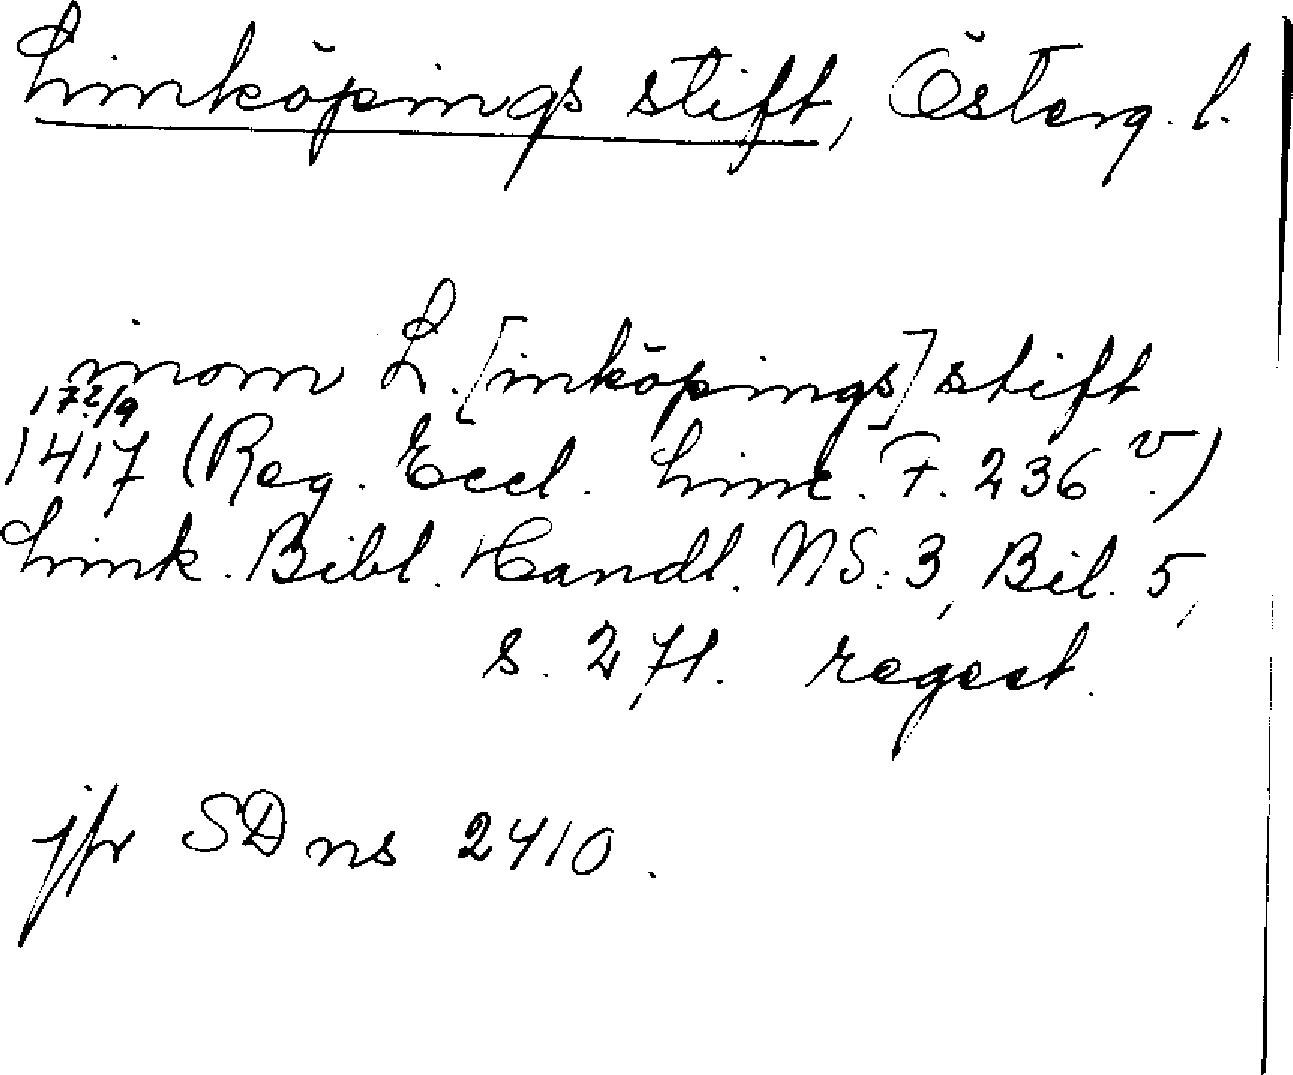 Linköpings stift, Österg. l.
inom L. [inköpings] stift
17?/9
1417 (Reg. Eccl. Linc. F. 236 v.)
Link. Bibl. Handl. NS: 3, Bil. 5,
s. 271. regest.
jfr SD ns 2410.